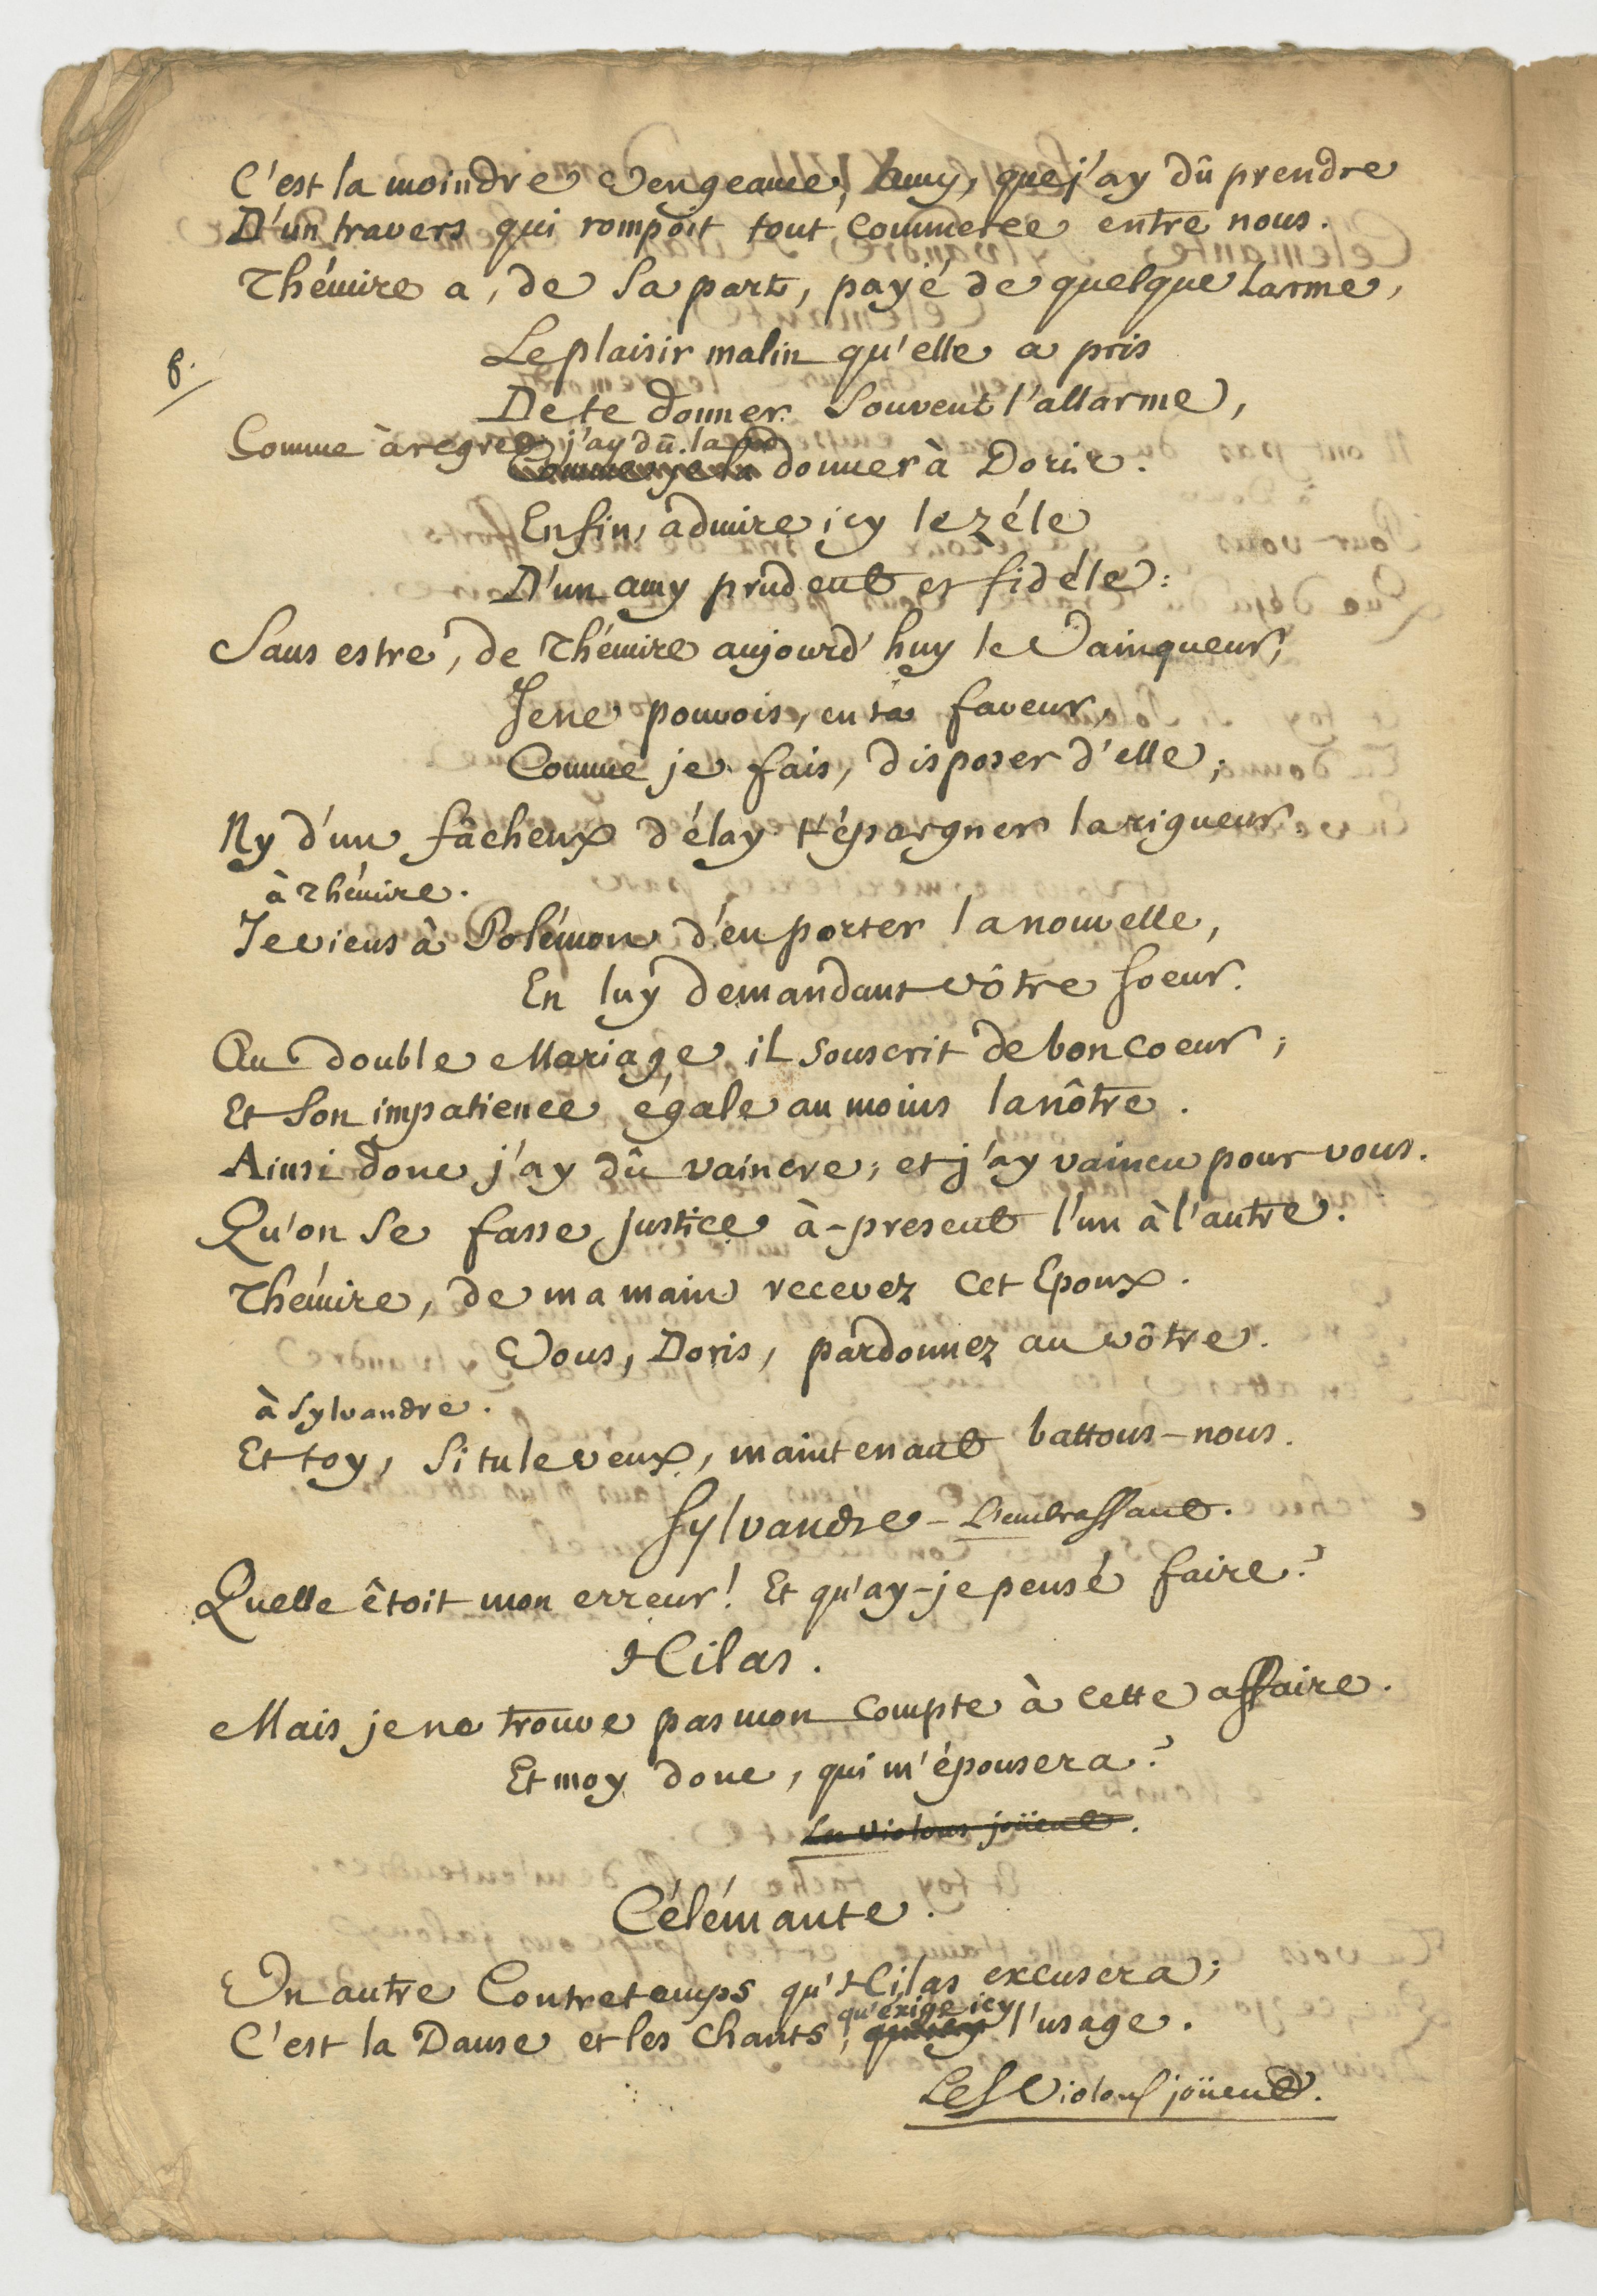 C'est la moindre Vengeance, Amy, que j'ay dû prendre
D'un travers qui rompoit tout Commerce entre nous.
Thémire a, de Sa part, payé de quelque Larme,
Le plaisir malin qu'elle a pris
β.
De te donner Souvent l'allarme,
Comme à regret j'ay dû la
donner à Doris.
Enfin, admire icy le zéle
D'un amy prudent et fidéle:
Sans estre, de Thémire aujourd'huy le Vainqueur,
Je ne pouvois, en ta faveur,
Comme je fais, disposer d'elle;
Ny d'un fâcheux délay t'épargner la rigueur.
à Thémire.
Je viens à Polémon d'en porter la nouvelle,
En luy demandant vôtre Soeur.
Au double Mariage il Souscrit de bon Coeur;
Et Son impatience égale au moins la nôtre.
Ainsi donc j'ay dû vaincre; et j'ay vaincu pour vous.
Qu'on Se fasse justice à-present l'un à l'autre.
Thémire, de ma main recevez Cet Epoux.
Vous, Doris, pardonnez au vôtre.
à Sylvandre.
Et toy, Si tu le veux, maintenant battons-nous.
Sylvandre - L'embrassant.
Quelle êtoit mon erreur! Et qu'ay-je pensé faire?
Hilas.
Mais je ne trouve pas mon Compte à Cette affaire.
Et moy donc, qui m'épousera?
Les Violons joüent.
Célémante.
Un autre Contretemps qu'Hilas excusera;
qu'éxige icy
C'est la Danse et les Chants, l'usage.
Les Violons joüent.